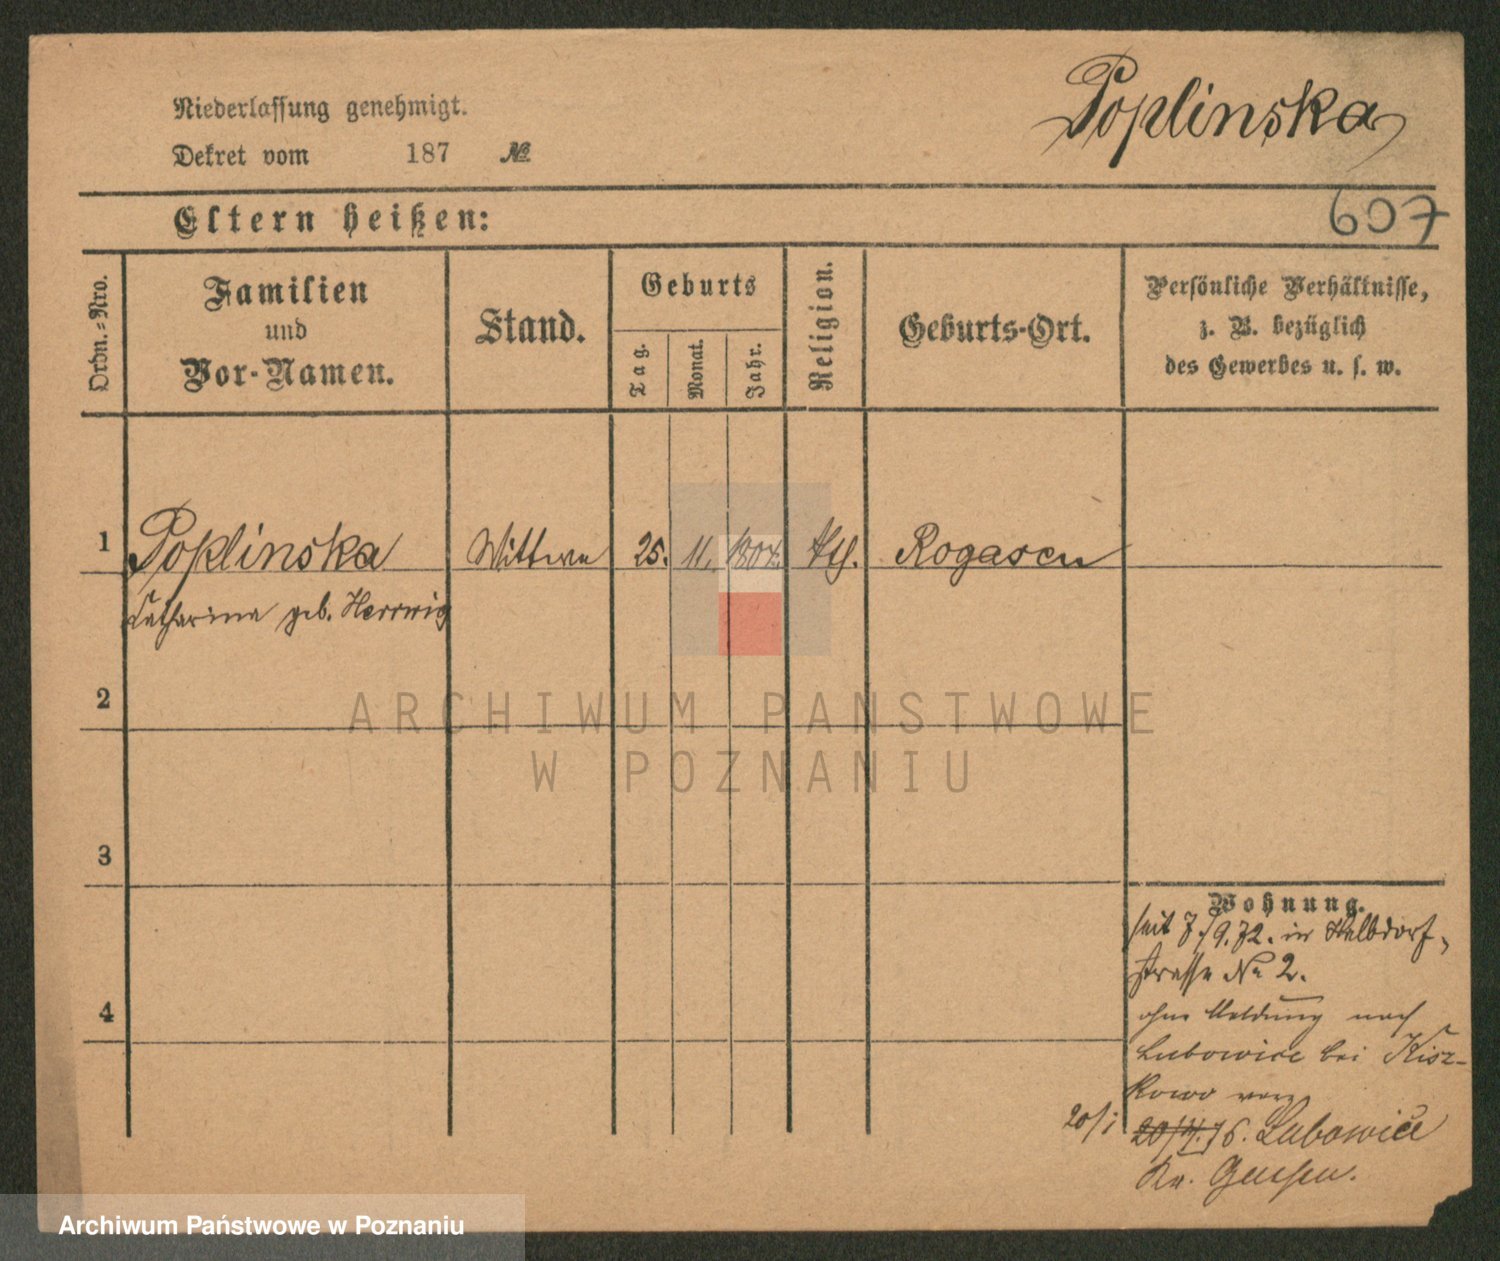 Poplinska
Niederlassung genehmigt.
Dekret vom 187 №
607
Eltern heißen:
Ordn.-Nro.
Familien
und
Vor-Namen.
Stand.
Geburts
Tag.
Monat.
Jahr.
Religion.
Geburts-Ort.
Persönliche Verhältnisse,
z. B. bezüglich
des Gewerbes u. s. w.
1 Poplinska Wittwe 25. 11. 1804. Rogasen
Catharina geb. Herrwig
2
ARCHIWUM PAŃSTWOWE
W POZNANIU
3
4
Wohnung.
seit 7/9.72. in Halbdorf-
strasse No 2.
ohne Meldung nach
Lubowice bei Kisz-
kowo verz
20/1 20/4. 76. Lubowice
Kr. Gnesen.
Archiwum Państwowe w Poznaniu